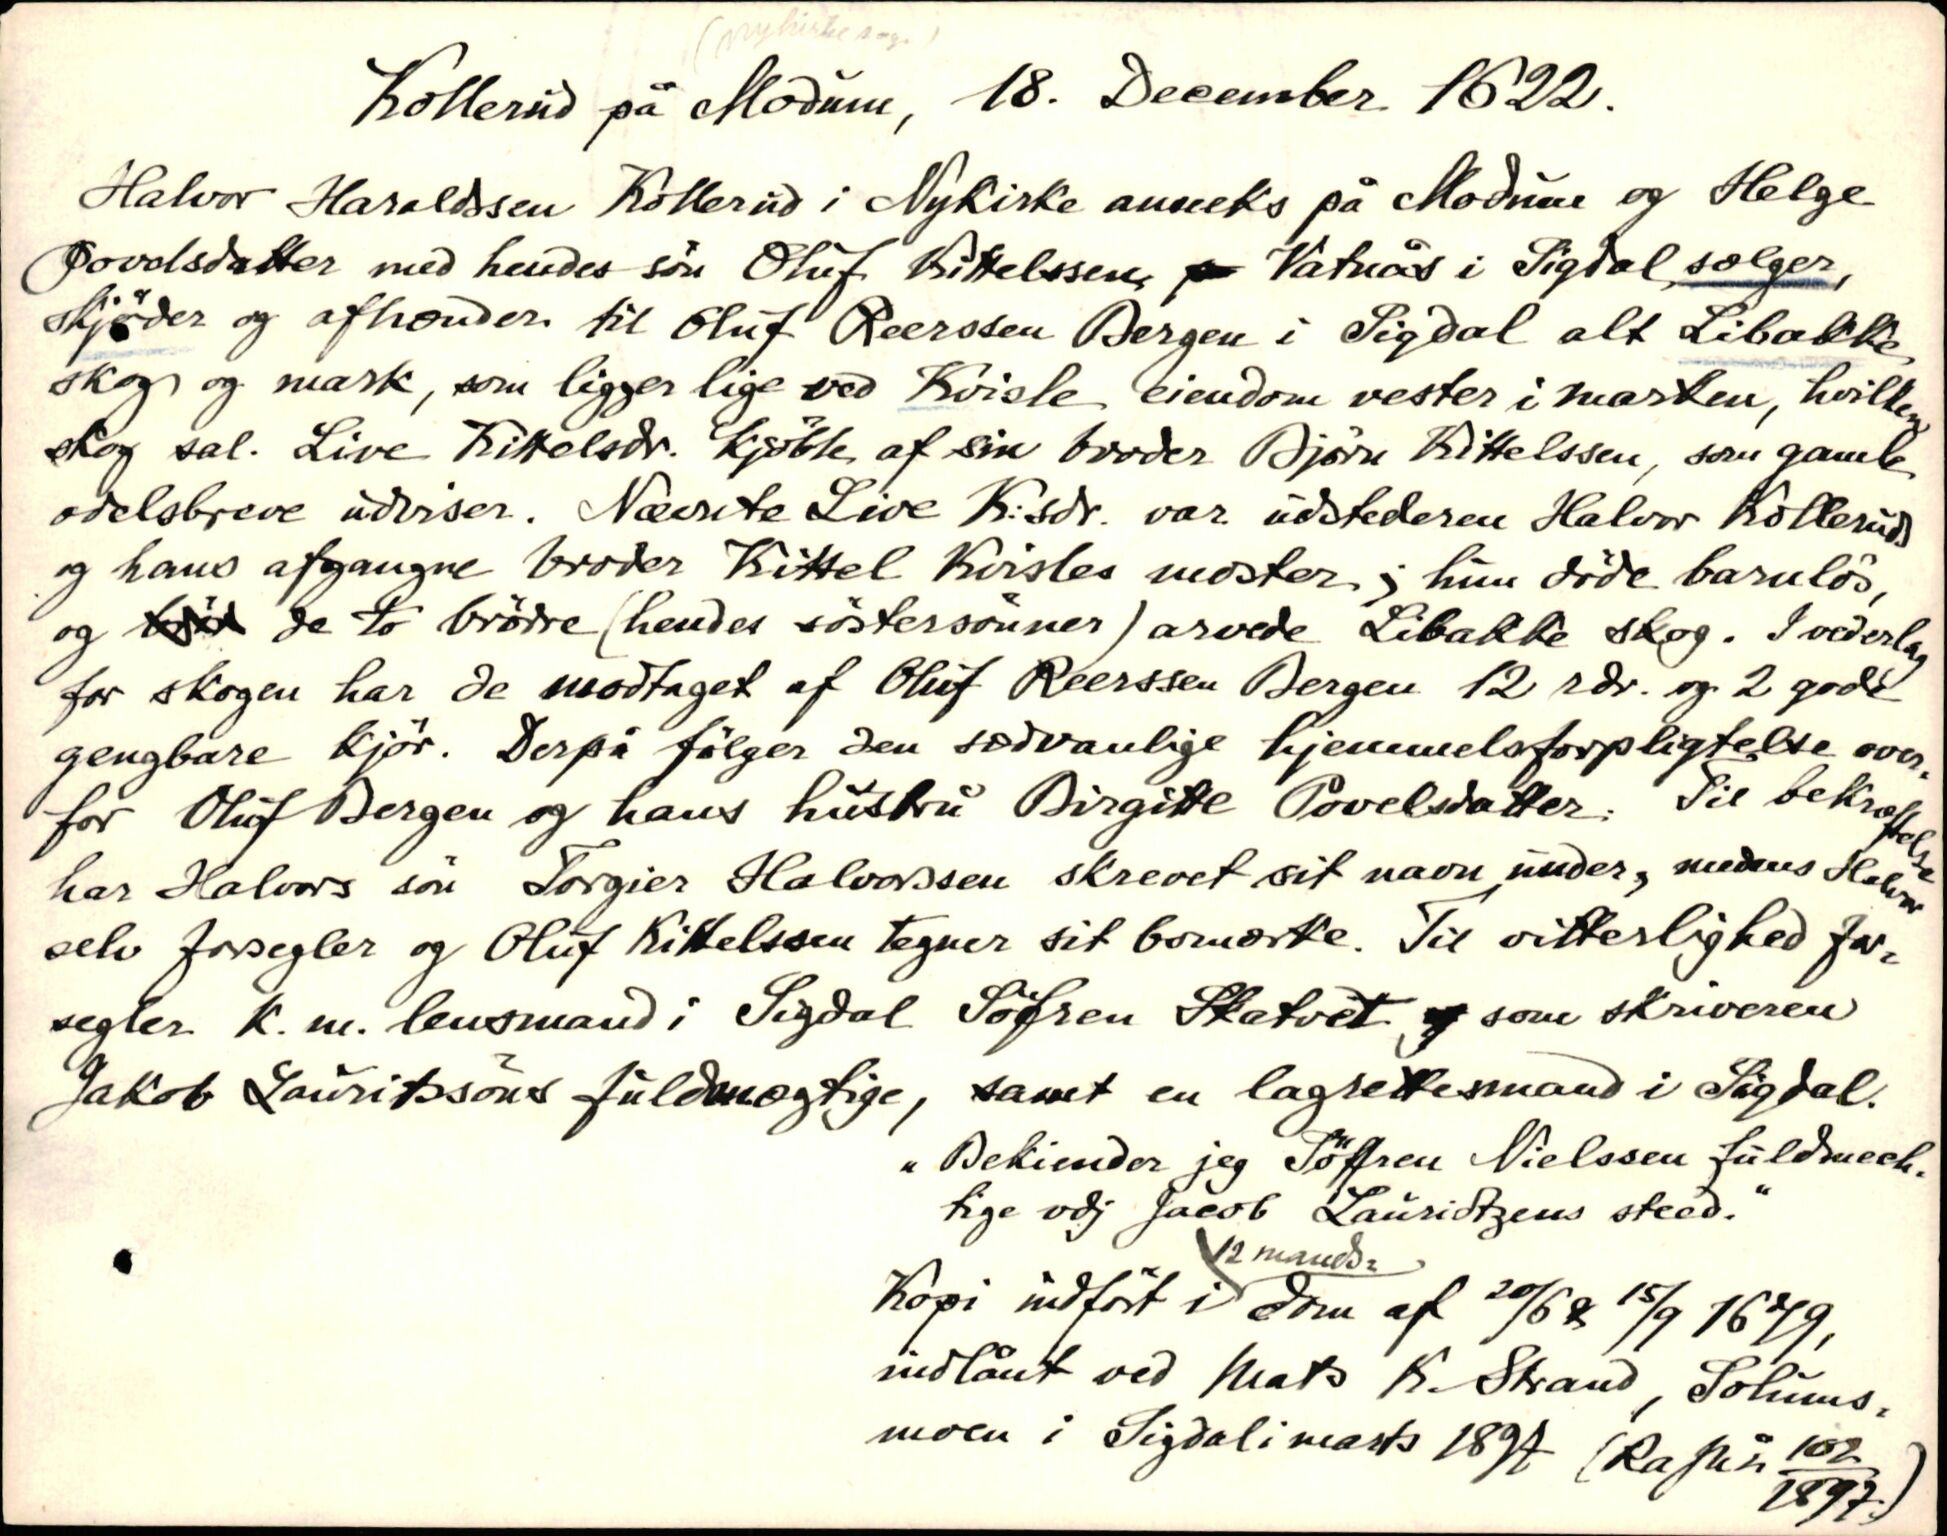 (Nykirke sogn)
Kollerud på Modum, 18. December 1622.
Halvor Haraldssen Kollerud i Nykirke anneks på Modum og Helge
Povelsdatter med hendes sön Oluf Kittelssen Vatnås i Sigdal sælger,
skjöder og afhænder til Oluf Reerssen Bergen i Sigdal alt Libakke
skog og mark, som ligger lige ved Kvisle eiendom vester i marken, hvilken
skog sal. Live Kittelsdr. kjöbte af sin broder Björn Kittelssen, som gamle
odelsbreve udviser. Nævnte Live K:sdr. var udstederen Halvor Kolleruds
og hans afgangne broder Kittel Kvisles moster; hun döde barnlös,
og de to brödre (hendes söstersönner) arvede Libakke skog. I vederlag
for skogen har de modtaget af Oluf Reerssen Bergen 12 rdr. og 2 gode
gengbare kjör. Derpå fölger den sædvanlige hjemmelsforpligtelse over-
for Oluf Bergen og hans hustru Birgitte Povelsdatter. Til bekræftelse
har Halvors sön Torgier Halvorssen skrevet sit navn under, medens Halvor
selv forsegler og Oluf Kittelssen tegner sit bomærke. Til vitterlighed for-
segler k. m. lensmand i Sigdal Söfren Skatvet som skriveren
Jakob Lauritssöns fuldmægtige, samt en lagrettesmand i Sigdal.
"Bekiender jeg Söffren Nielssen fuldmech-
tige vdj Jacob Lauridtzens steed."
12 mands-
Kopi indfört i dom af 20/6 & 15/9 1679,
indlånt ved Mats K. Strand, Solums-
moen i Sigdal i marts 1897 (Ra 102
1897.)